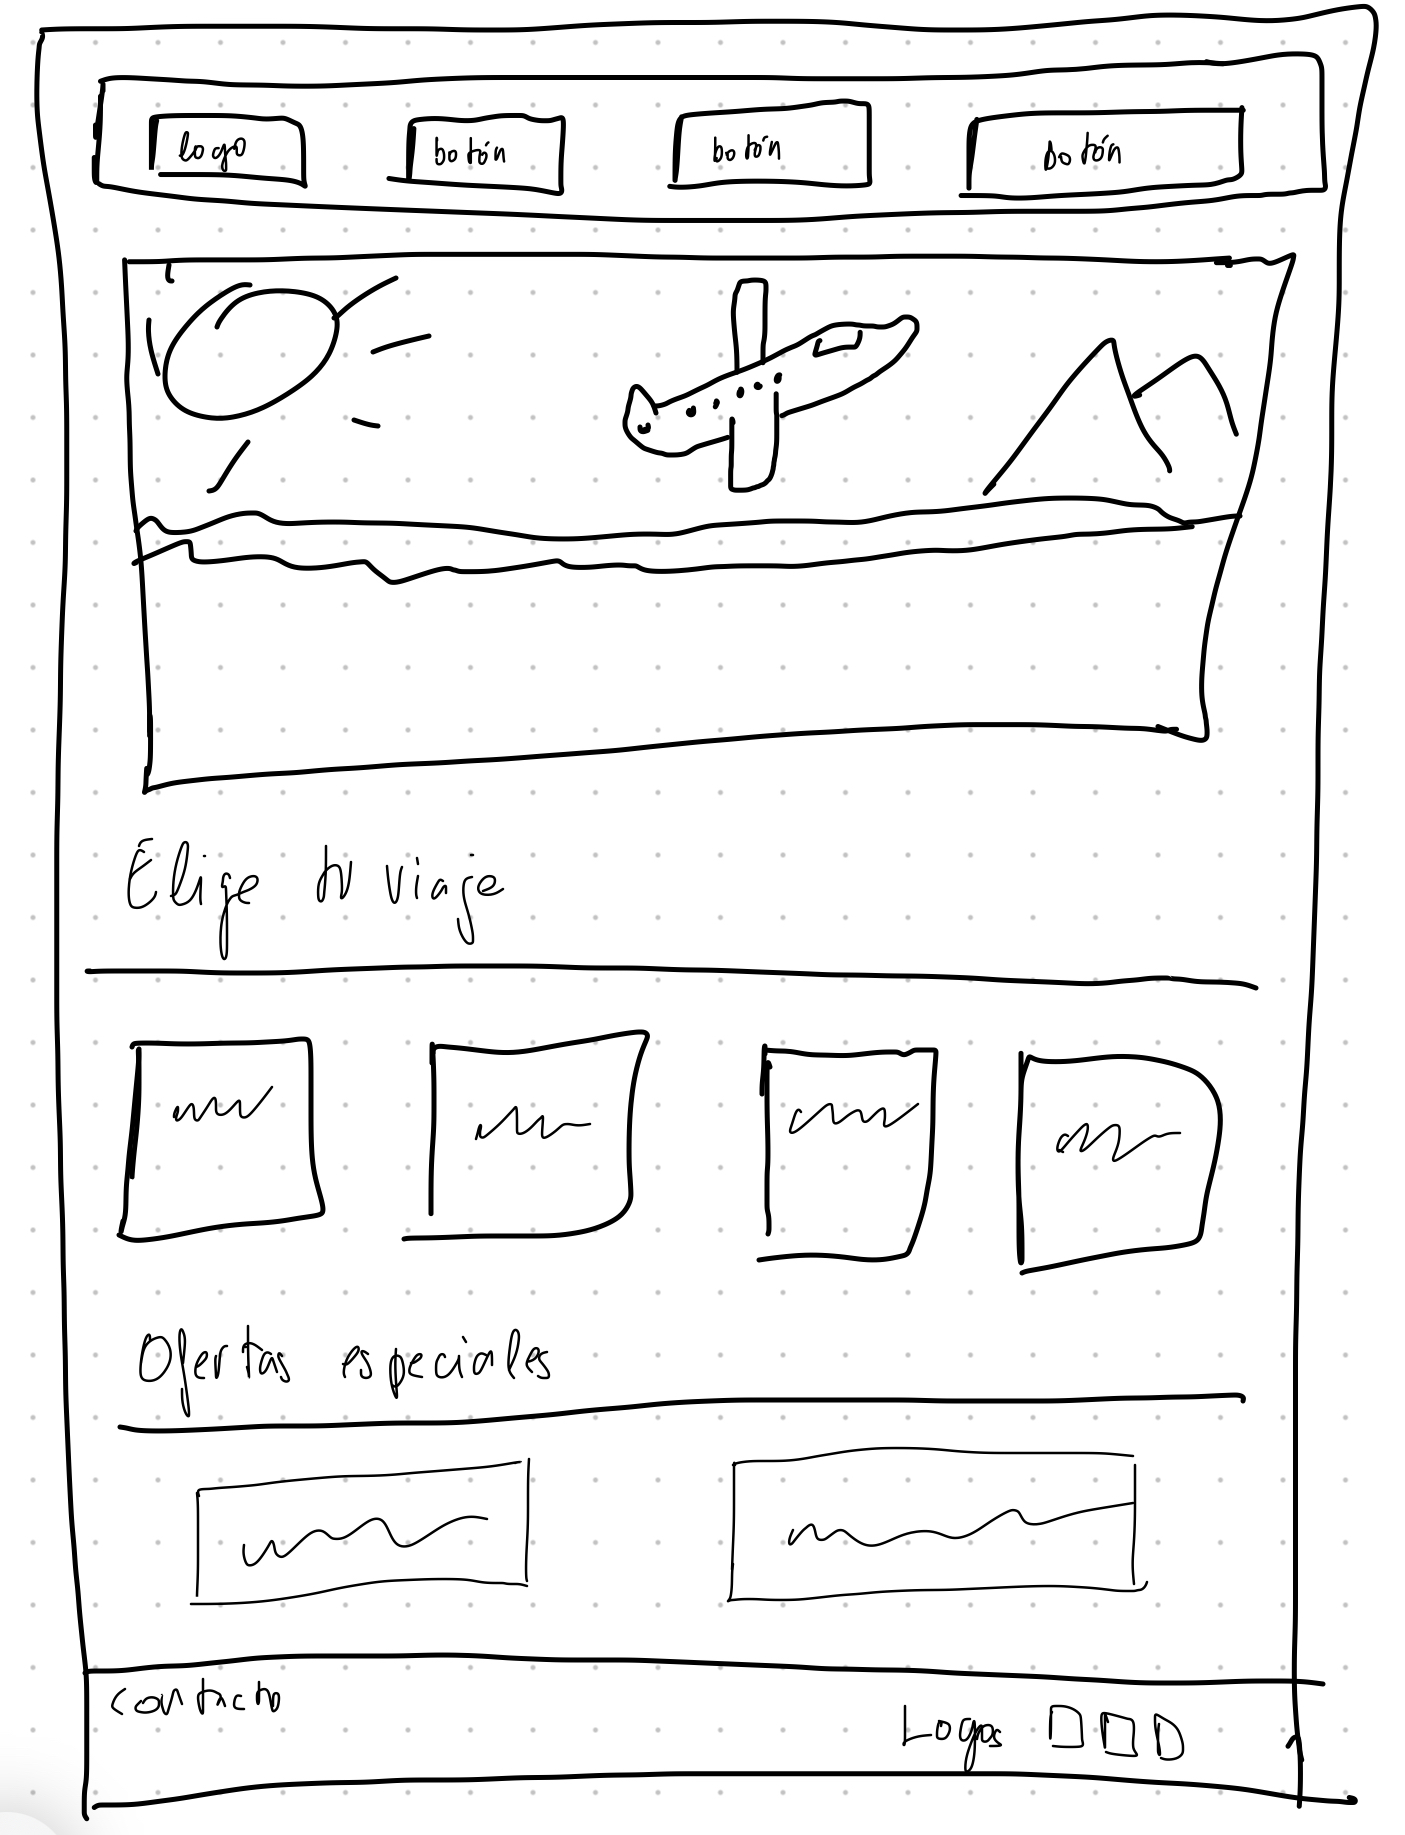 logo botón botón botón
Elige tu viaje
Ofertas especiales
contacto
Logos